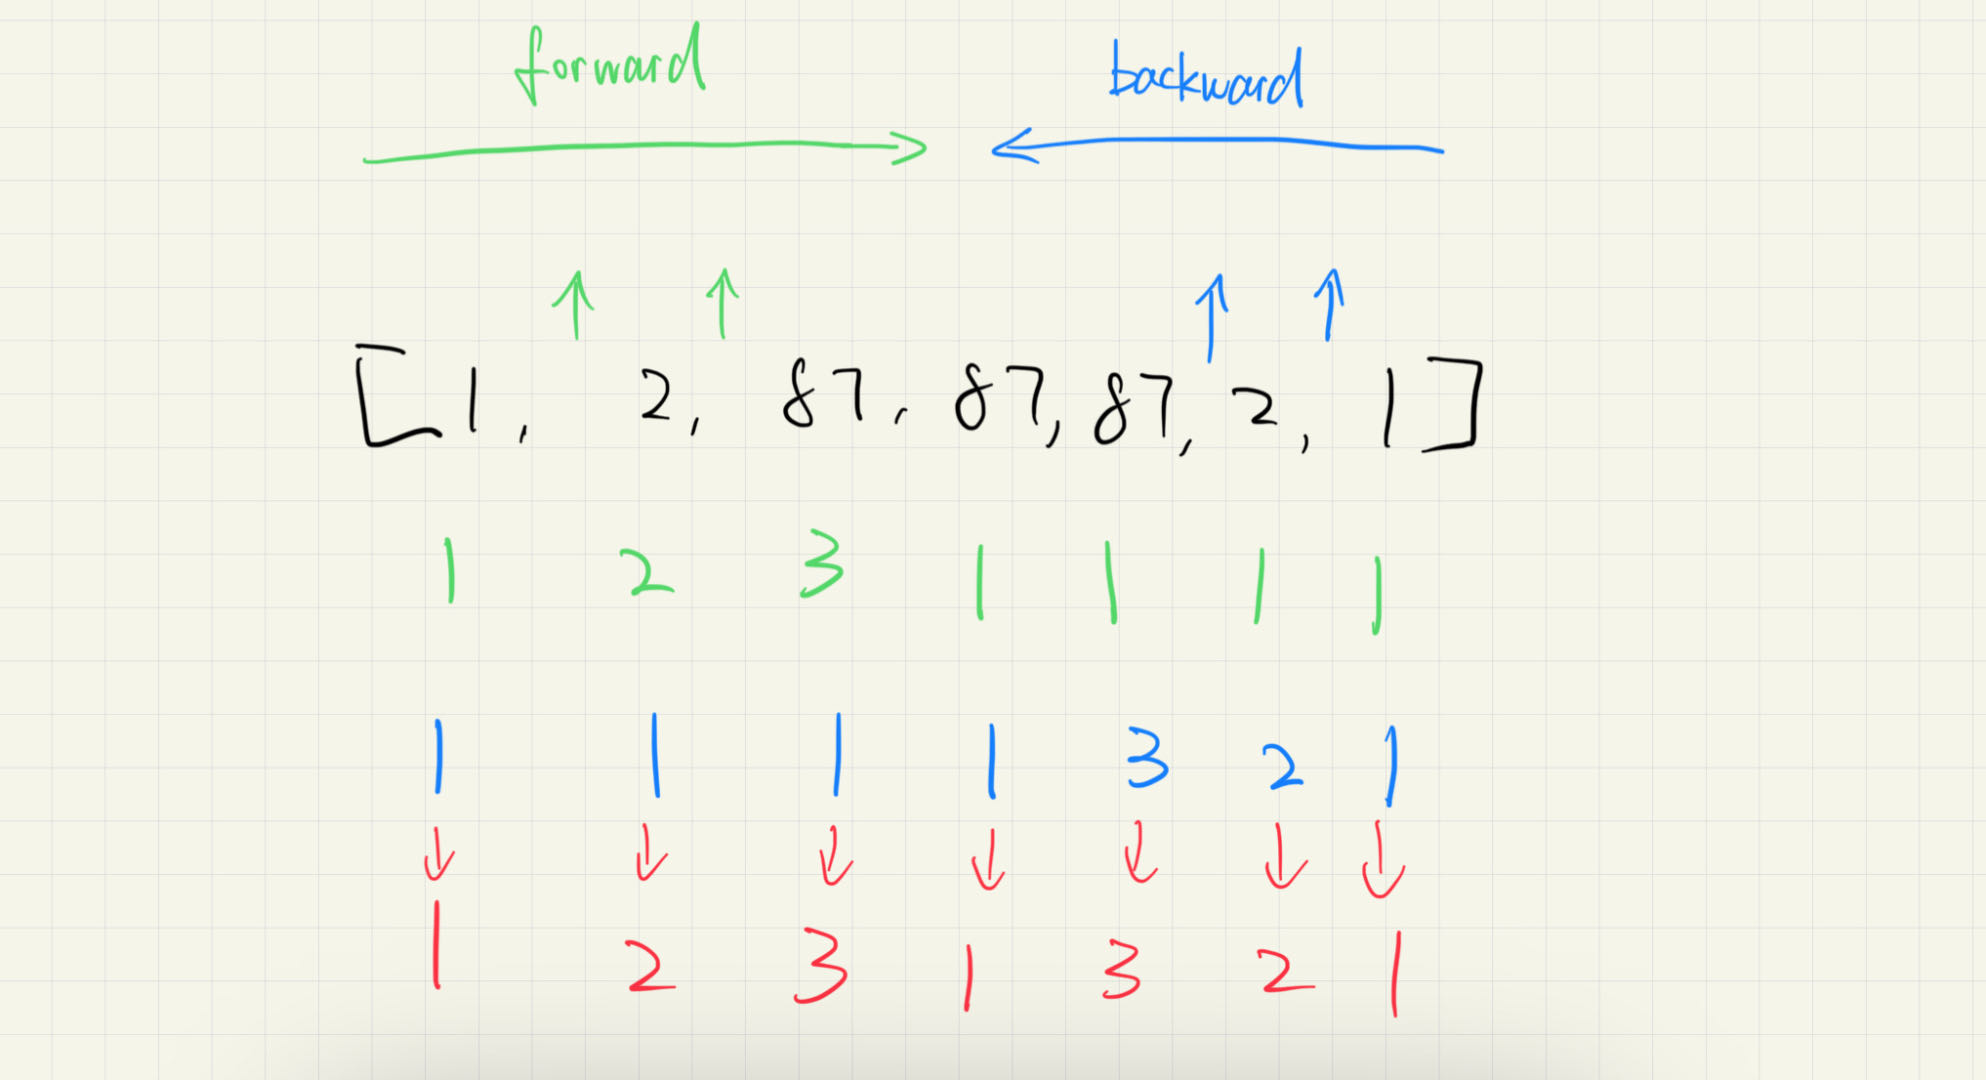 forward backward
[1, 2, 87, 87, 87, 2, 1]
1 2 3 1 1 1 1
1 1 1 1 3 2 1
1 2 3 1 3 2 1